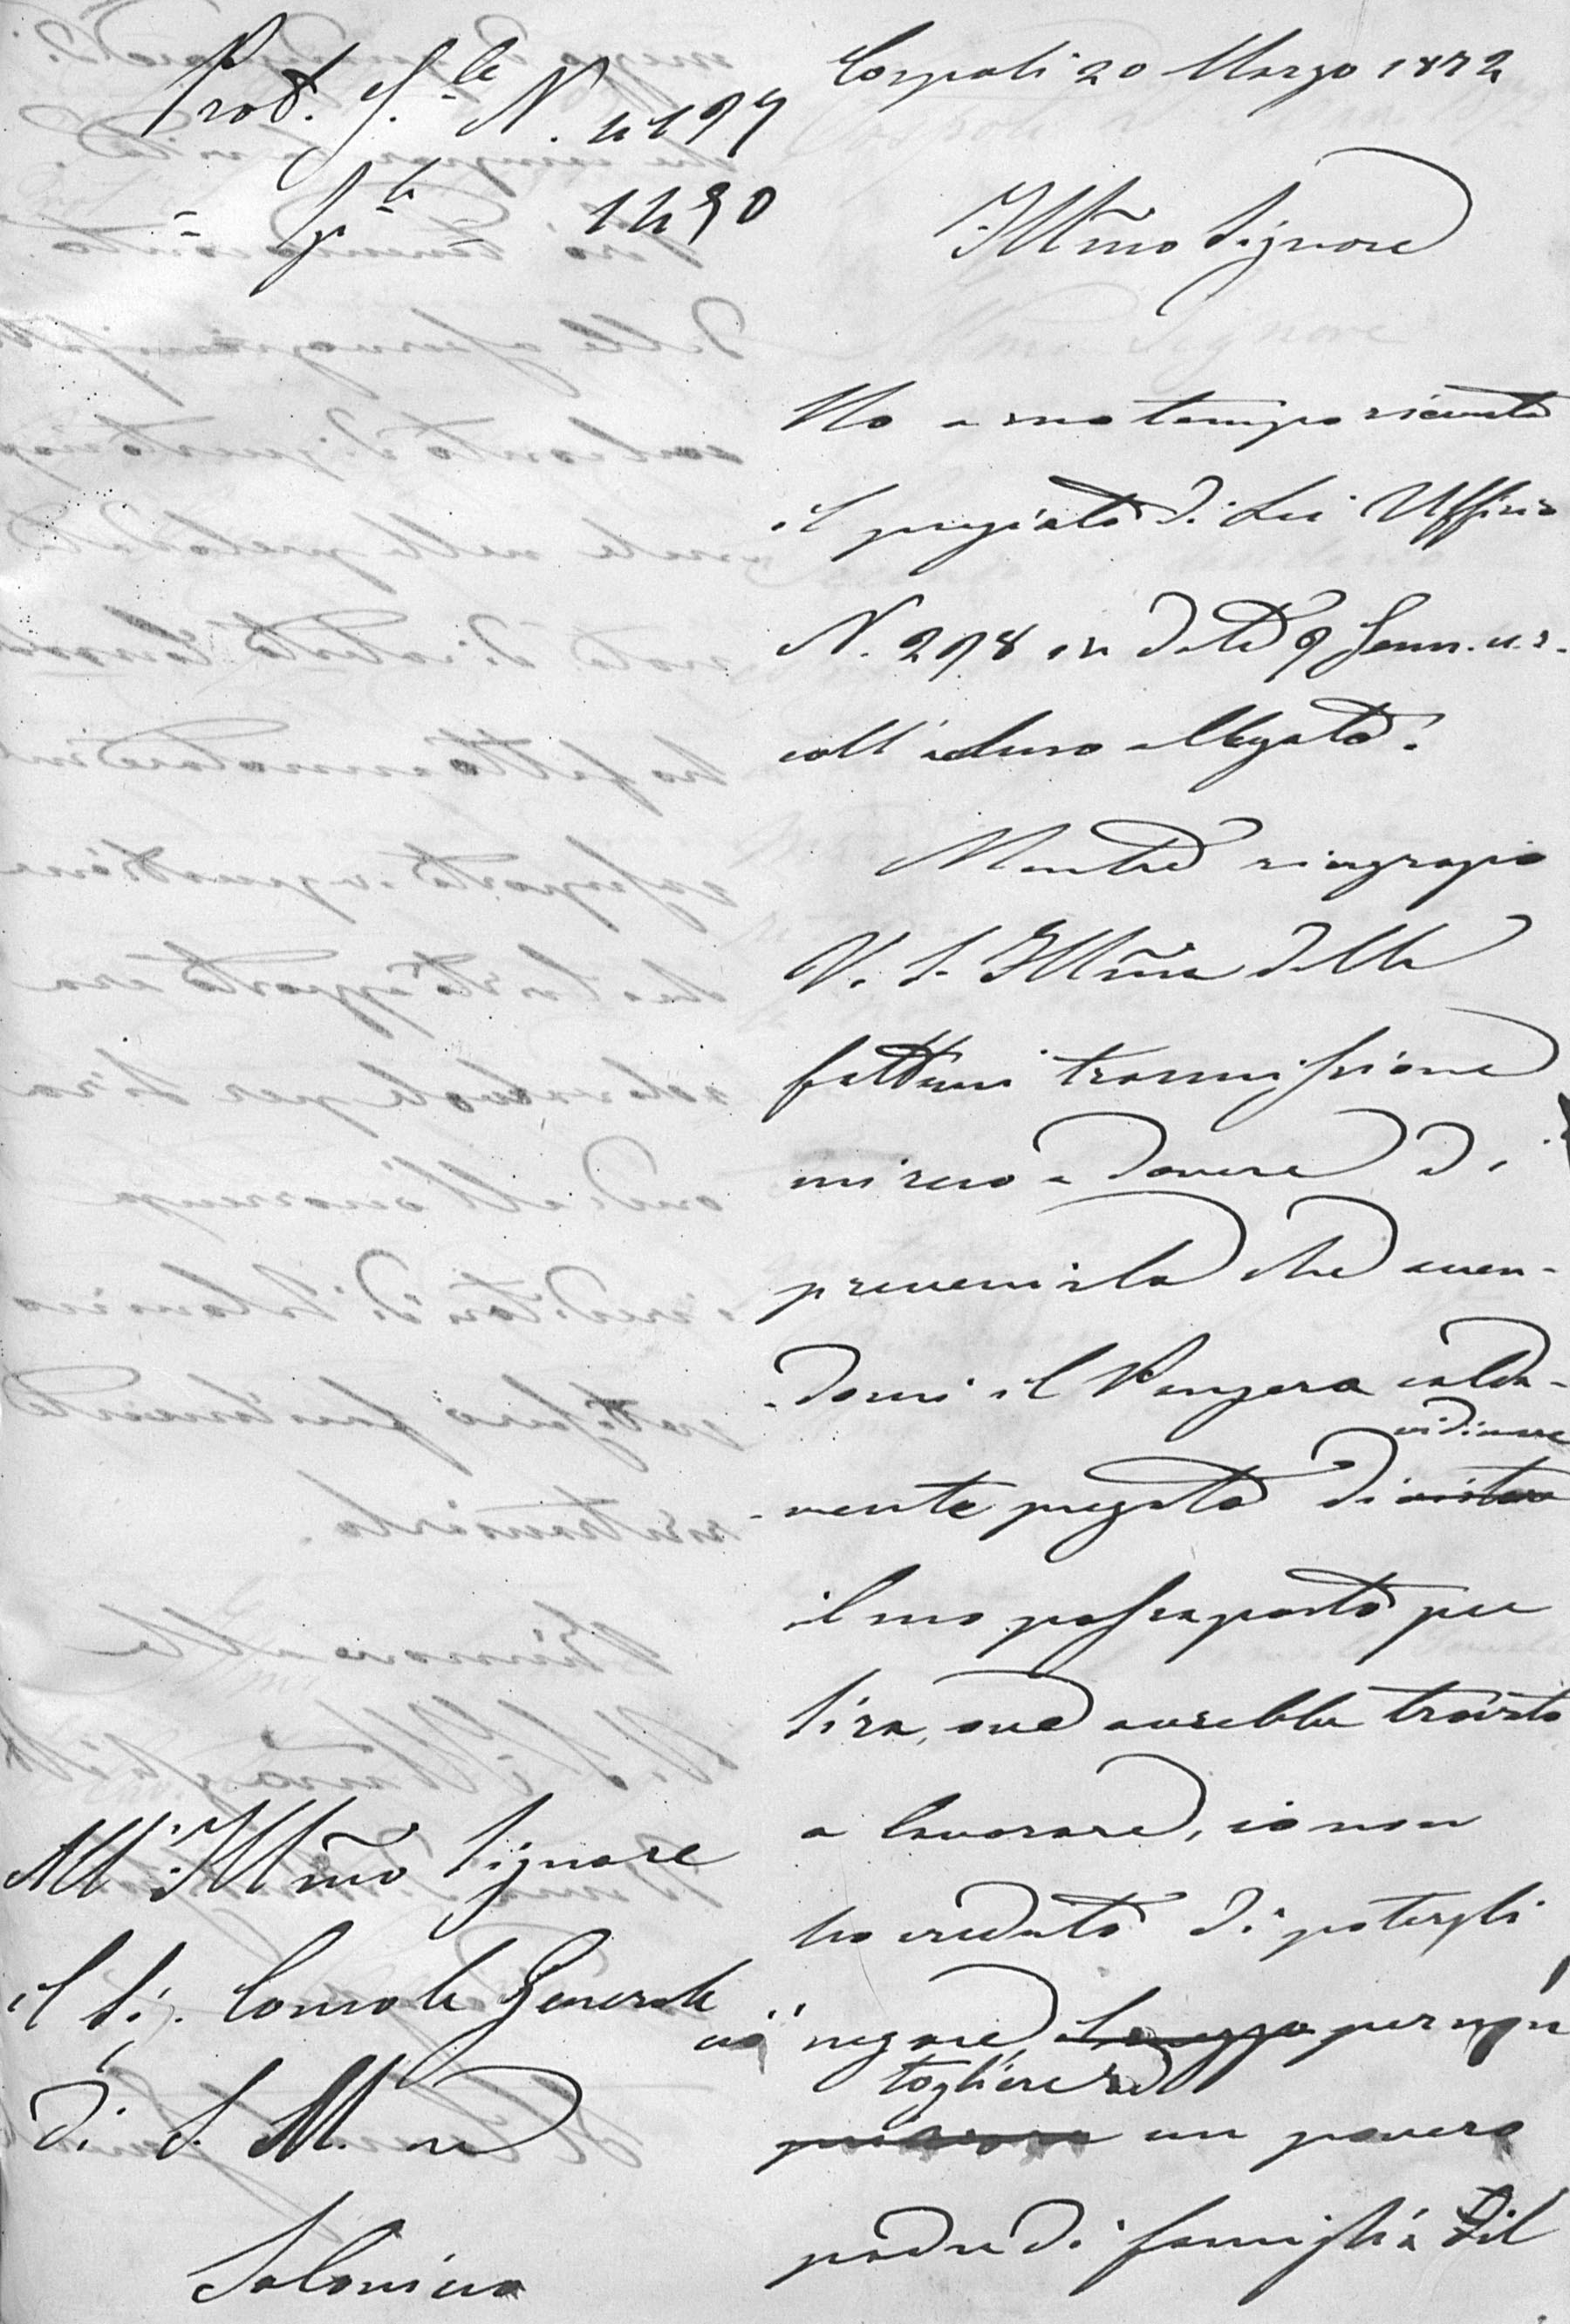 Prot. G.le N. 4197
= Sp.le = 1430
Cospoli 20 Marzo 1872
Illm̃o Signore
Ho a suo tempo ricevuto
il pregiato di Lei Uffizio
N. 298 in data 9 Genn. u.s.
coll'acluso allegato.
Mentre ringrazio
V. S. Illm̃a della
fattami trasmissione
mi reco a dovere di
prevenirla che aven-
-domi il Pangera calda-
vidimare
-mente pregato di vistare
il suo passaporto per
Sira, ove avrebbe trovato
a lavorare, io non
ho creduto di potergli
ciò negare per non
togliere ad
un povero
padre di famiglia il
All'Illm̃o Signore
il Sig. Console Generale
di S. M. in
Salonicco